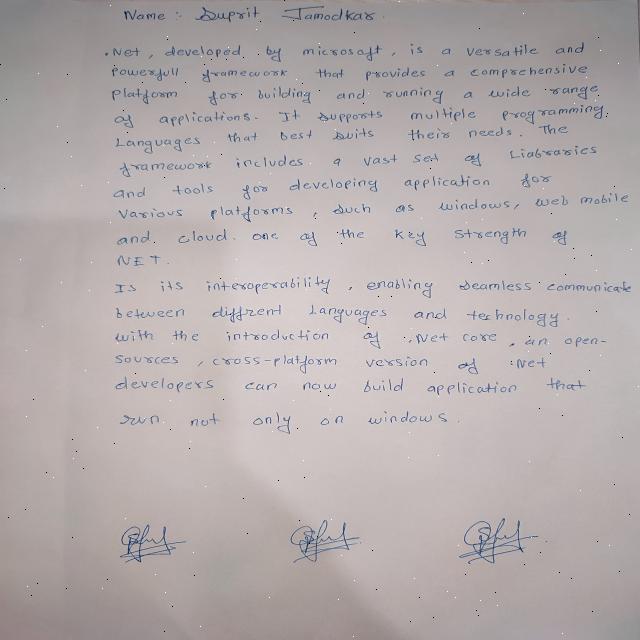 Name : Suprit Jamodkar.
.Net, developed by microsoft, is a versatile and
powerfull framework that provides a comprehensive
platform for building and running a wide range
of applications. It supports multiple programming
Languages that best suits their needs. The
framework includes a vast set of Liabraries
and tools for developing application for
various platforms, such as windows, web mobile
and cloud. one of the key strength of
NET.
Is its interoperability, enabling seamless communicate
between diffrent languages and technology.
with the introduction of .Net core, an open-
sources, cross-platform version of .Net
developers can now build application that
run not only on windows.